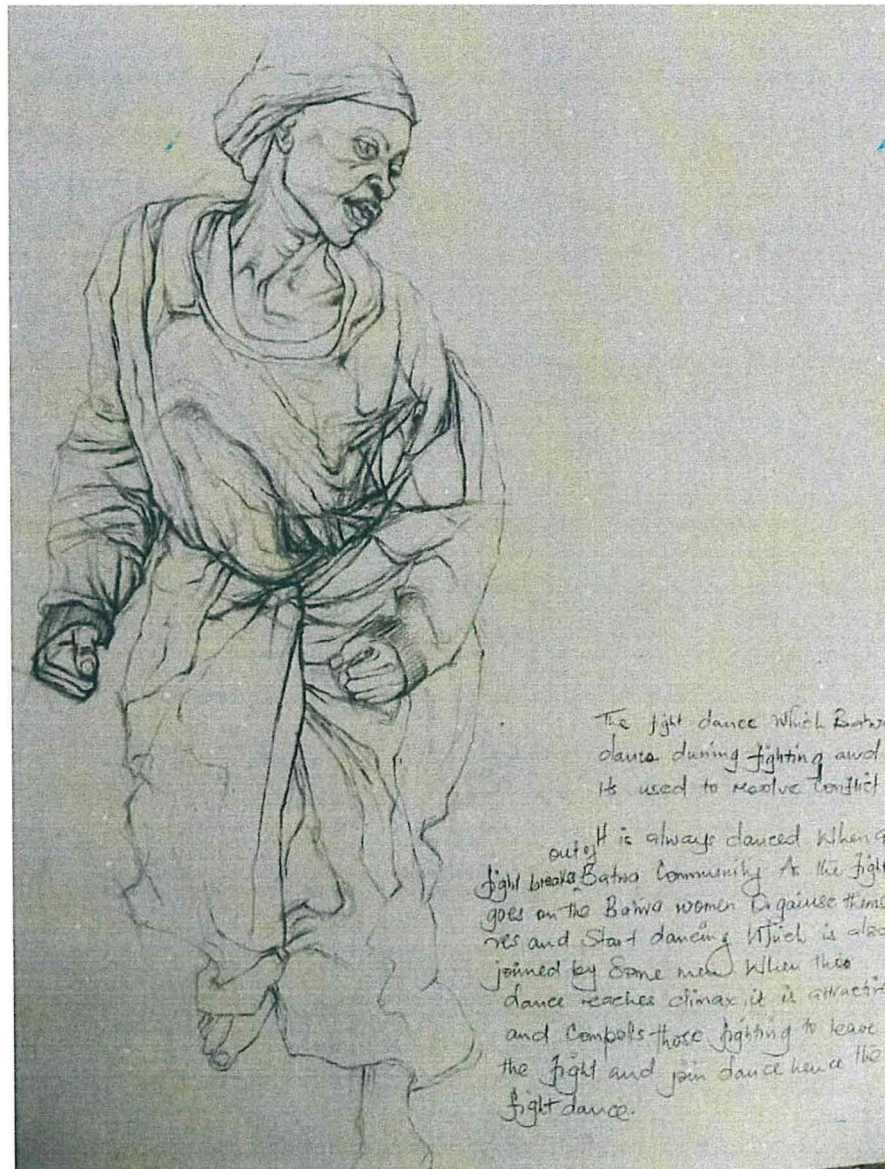 The fight dance which Batwa
dance during fighting and
its used to resolve Conflict
It is always danced When a
out of
fight breaks Batwa Community As the fight
goes on the Batwa women Organise themsel
ves and Start dancing Which is also
joined by Some men When this
dance reaches climax, it is attractive
and Compells those fighting to leave
the fight and join dance hence the
fight dance.